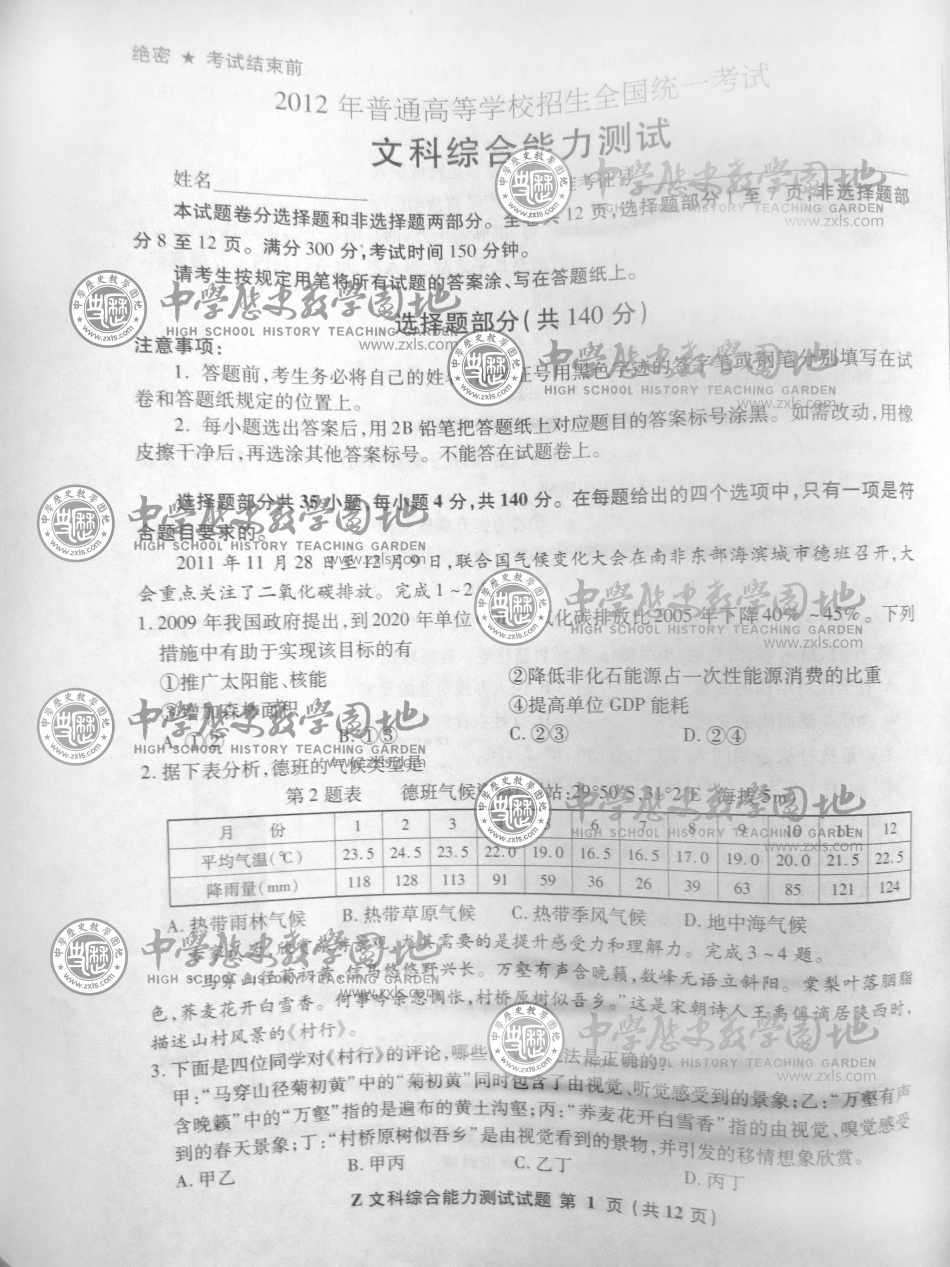 绝密 ★ 考试结束前
2012 年普通高等学校招生全国统一考试
文科综合能力测试
姓名
本试题卷分选择题和非选择题两部分。全 12 页,选择题部分 1 至 7 页,非选择题部
分 8 至 12 页。满分 300 分,考试时间 150 分钟。
请考生按规定用笔将所有试题的答案涂、写在答题纸上。
选择题部分(共 140 分)
注意事项:
1. 答题前,考生务必将自己的姓 证号用黑色字迹的签字笔或钢笔分别填写在试
卷和答题纸规定的位置上。
2. 每小题选出答案后,用 2B 铅笔把答题纸上对应题目的答案标号涂黑。如需改动,用橡
皮擦干净后,再选涂其他答案标号。不能答在试题卷上。
选择题部分共 35 小题,每小题 4 分,共 140 分。在每题给出的四个选项中,只有一项是符
合题目要求的。
2011 年 11 月 28 日至 12 月 9 日,联合国气候变化大会在南非东部海滨城市德班召开,大
会重点关注了二氧化碳排放。完成 1~2
1. 2009 年我国政府提出,到 2020 年单位 氧化碳排放比 2005 年下降 40%~45%。下列
措施中有助于实现该目标的有
①推广太阳能、核能 ②降低非化石能源占一次性能源消费的比重
③增加森林面积 ④提高单位 GDP 能耗
A. ①② B. ①③ C. ②③ D. ②④
2. 据下表分析,德班的气候类型是
第 2 题表 德班气候 站:29°50′S 31°2′E 海拔 5m)
月 份 1 2 3 5 6 8 9 10 11 12
平均气温(℃) 23.5 24.5 23.5 22.0 19.0 16.5 16.5 17.0 19.0 20.0 21.5 22.5
降雨量(mm) 118 128 113 91 59 36 26 39 63 85 121 124
A. 热带雨林气候 B. 热带草原气候 C. 热带季风气候 D. 地中海气候
需要的是提升感受力和理解力。完成 3~4 题。
“马穿山径菊初黄,信马悠悠野兴长。万壑有声含晚籁,数峰无语立斜阳。棠梨叶落胭脂
色,荞麦花开白雪香。何事吟余忽惆怅,村桥原树似吾乡。”这是宋朝诗人王禹偁谪居陕西时,
描述山村风景的《村行》。
3. 下面是四位同学对《村行》的评论,哪些 法是正确的?
甲:“马穿山径菊初黄”中的“菊初黄”同时包含了由视觉、听觉感受到的景象;乙:“万壑有声
含晚籁”中的“万壑”指的是遍布的黄土沟壑;丙:“荞麦花开白雪香”指的由视觉、嗅觉感受
到的春天景象;丁:“村桥原树似吾乡”是由视觉看到的景物,并引发的移情想象欣赏。
A. 甲乙 B. 甲丙 C. 乙丁 D. 丙丁
Z 文科综合能力测试试题 第 1 页(共 12 页)
中學歷史教學園地
HIGH SCHOOL HISTORY TEACHING GARDEN
www.zxls.com